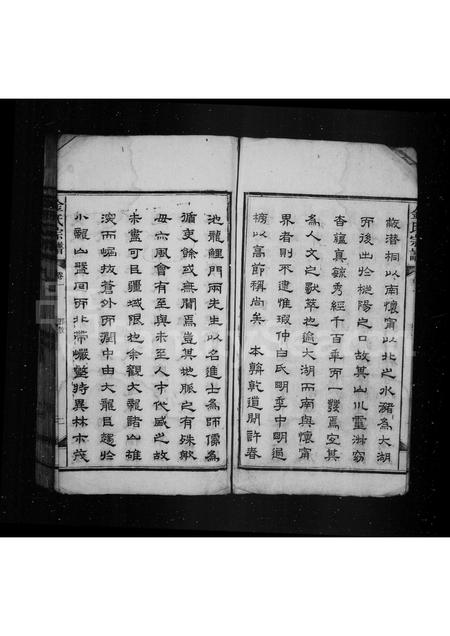 蔽潛桐以南懷甯以北之水瀦為大湖
而後出於樅陽之口故其山川靈淑窈
杳蘊真毓秀經千百年而一發焉宜其
為人文之藪萃也逾大湖而南與懷甯
界者則不遠惟瑕仲白氏明季中明過
槁以高節稱尚矣 本朝乾道間許春
池龍鯉門兩先生以名進士為師儒為
循吏餘或無聞焉豈其地脈之有殊歟
毋亦風會有至與未至人中代盛之故
未盡可目疆域限也余觀大龍諸山雄
深而崛拔蒼外而潤中由大龍目蹑於
小龍山豎同而北帶巖壑特異林木茂
金氏宗譜
卷一